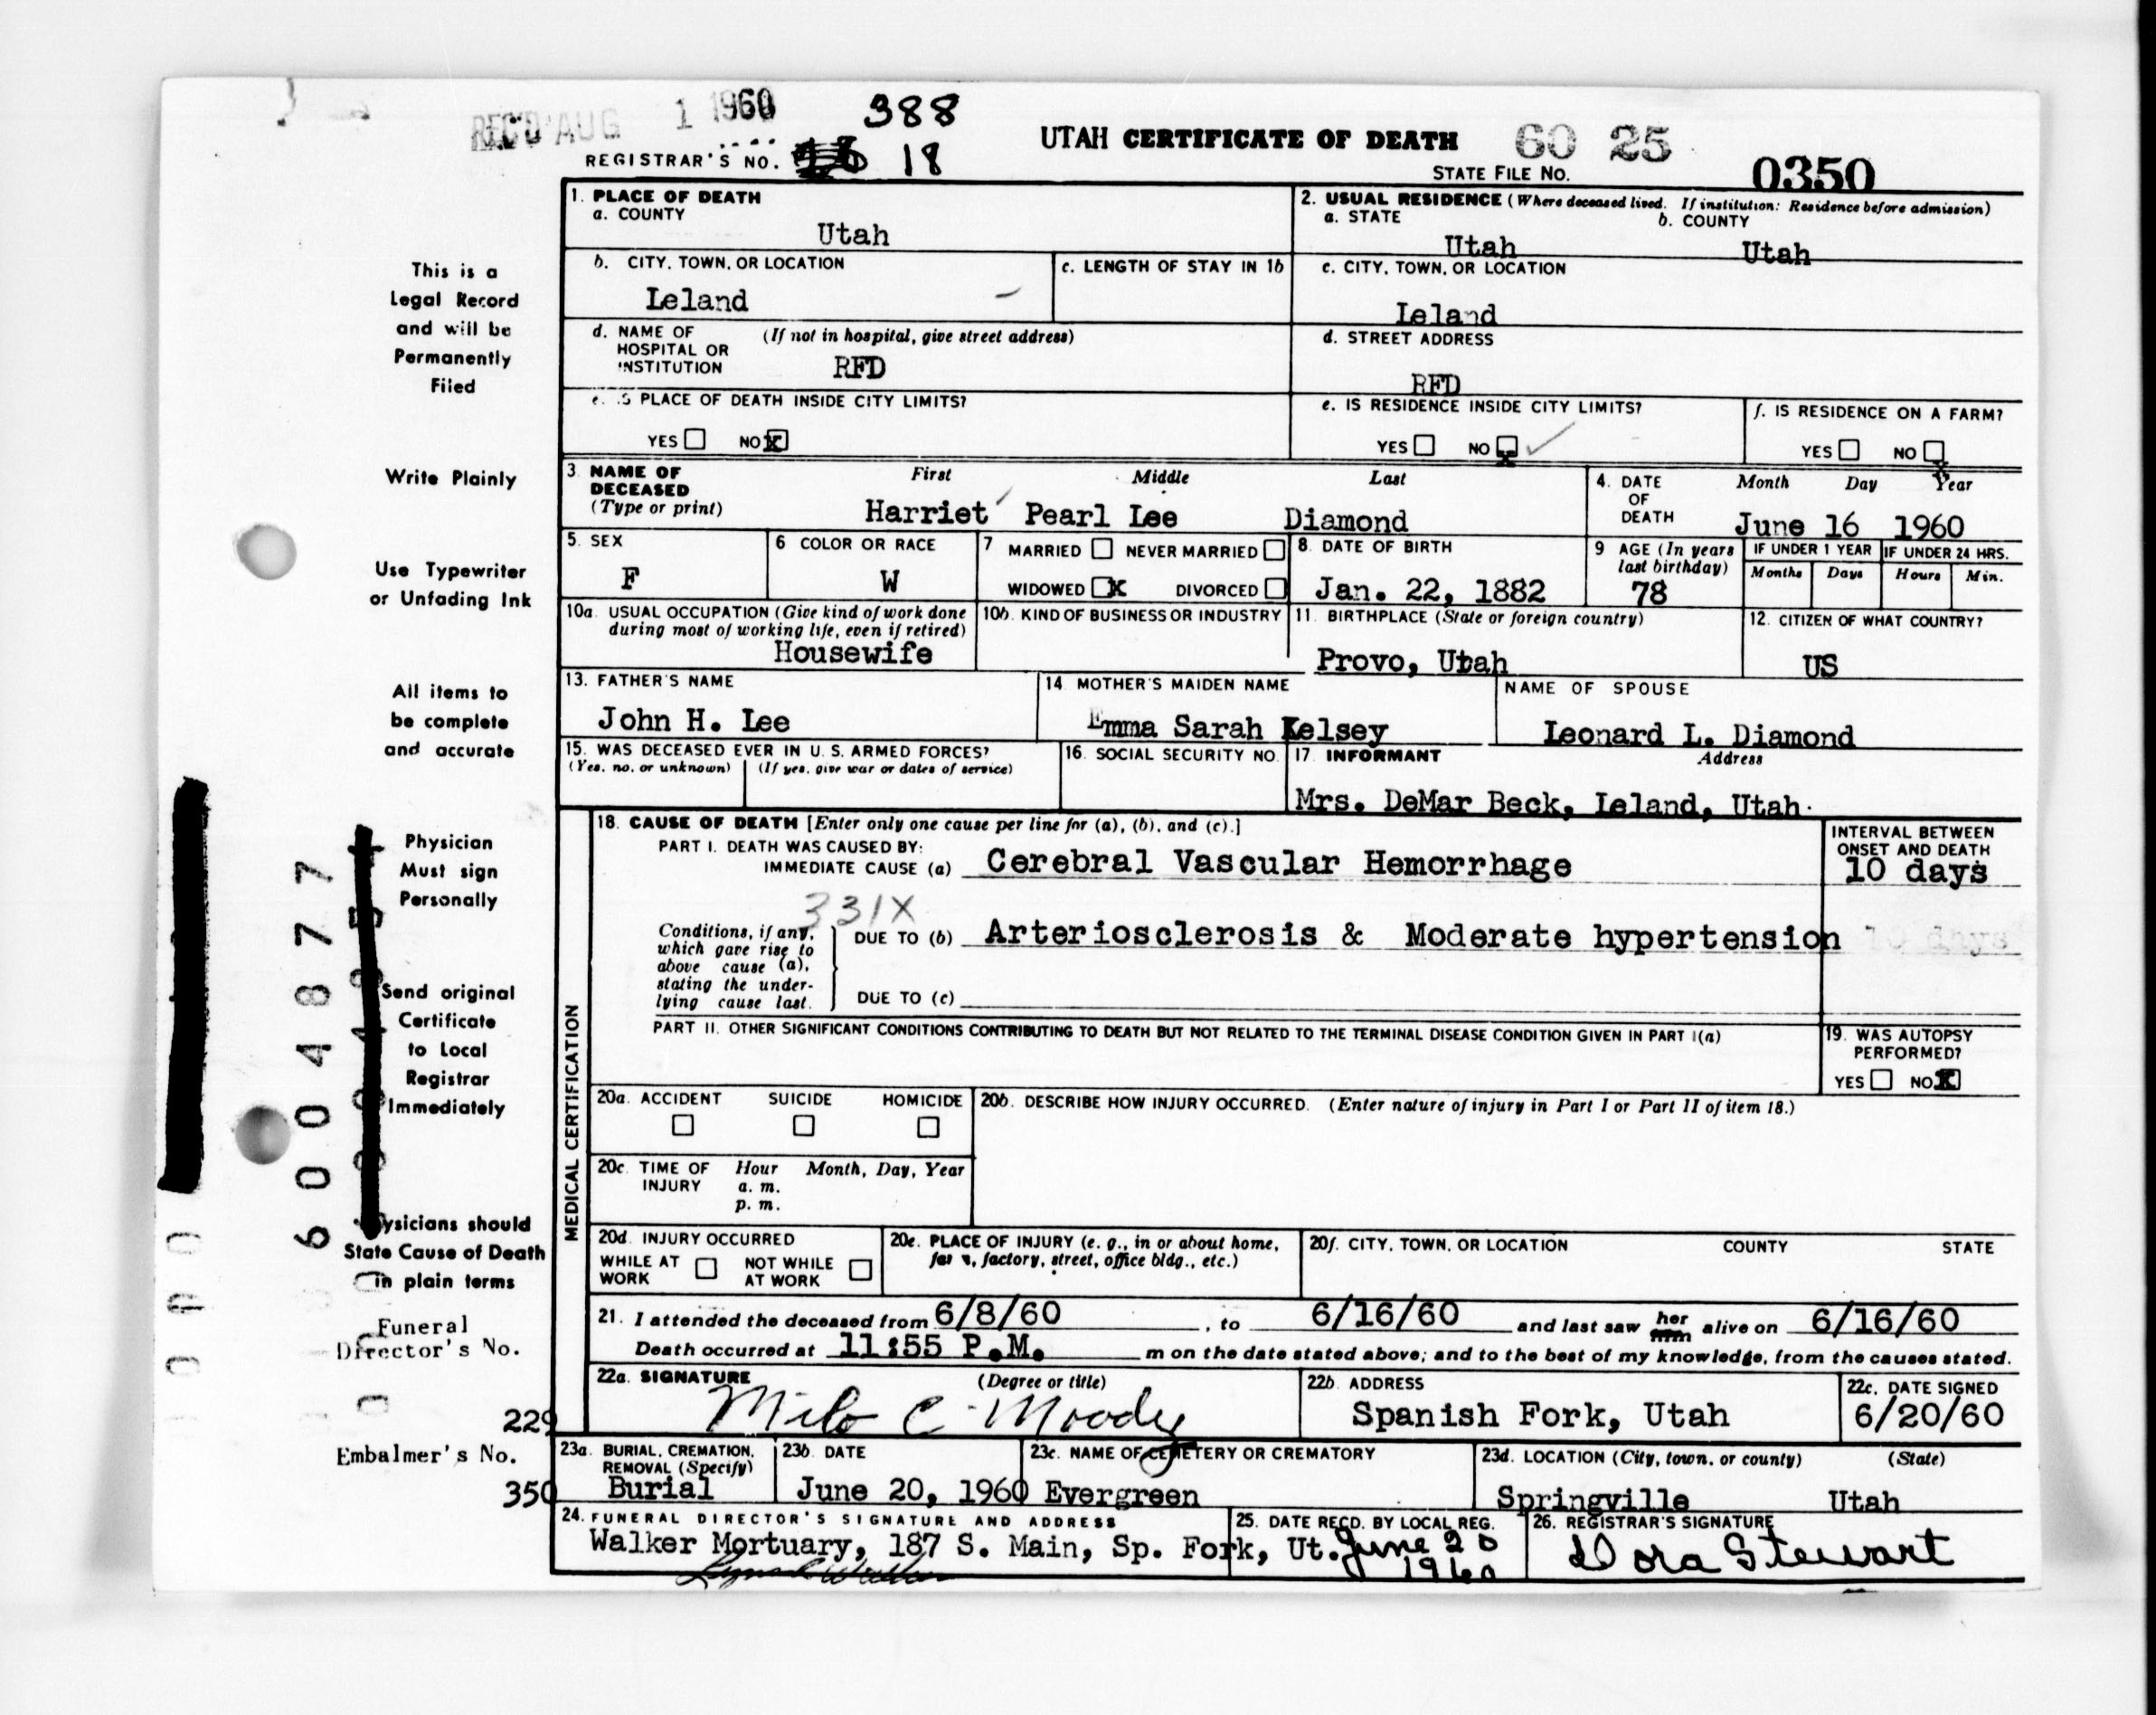 REC'D AUG 1 1960
388
UTAH CERTIFICATE OF DEATH 60 25
REGISTRAR'S NO. 18
STATE FILE NO. 0350
This is a
Legal Record
and will be
Permanently
Filed
Write Plainly
Use Typewriter
or Unfading Ink
All items to
be complete
and accurate
Physician
Must sign
Personally
Send original
Certificate
to Local
Registrar
Immediately
ysicians should
State Cause of Death
in plain terms
Funeral
Director's No.
229
Embalmer's No.
350
6004877
1. PLACE OF DEATH
a. COUNTY
Utah
2. USUAL RESIDENCE (Where deceased lived. If institution: Residence before admission)
a. STATE b. COUNTY
Utah Utah
b. CITY, TOWN, OR LOCATION
Leland
c. LENGTH OF STAY IN 1b
c. CITY, TOWN, OR LOCATION
Leland
d. NAME OF (If not in hospital, give street address)
HOSPITAL OR
INSTITUTION RFD
d. STREET ADDRESS
RFD
e. IS PLACE OF DEATH INSIDE CITY LIMITS?
YES NO X
e. IS RESIDENCE INSIDE CITY LIMITS?
YES NO X
f. IS RESIDENCE ON A FARM?
YES NO X
3. NAME OF DECEASED (Type or print)
First Middle Last
Harriet Pearl Lee Diamond
4. DATE OF DEATH
Month Day Year
June 16 1960
5. SEX
F
6 COLOR OR RACE
W
7 MARRIED NEVER MARRIED
WIDOWED X DIVORCED
8. DATE OF BIRTH
Jan. 22, 1882
9 AGE (In years last birthday)
78
IF UNDER 1 YEAR IF UNDER 24 HRS.
Months Days Hours Min.
10a. USUAL OCCUPATION (Give kind of work done
during most of working life, even if retired)
Housewife
10b. KIND OF BUSINESS OR INDUSTRY
11. BIRTHPLACE (State or foreign country)
Provo, Utah
12. CITIZEN OF WHAT COUNTRY?
US
13. FATHER'S NAME
John H. Lee
14 MOTHER'S MAIDEN NAME
Emma Sarah Kelsey
NAME OF SPOUSE
Leonard L. Diamond
15. WAS DECEASED EVER IN U. S. ARMED FORCES?
(Yes, no, or unknown) (If yes, give war or dates of service)
16. SOCIAL SECURITY NO.
17. INFORMANT Address
Mrs. DeMar Beck, Leland, Utah.
MEDICAL CERTIFICATION
18. CAUSE OF DEATH [Enter only one cause per line for (a), (b), and (c).]
PART I. DEATH WAS CAUSED BY:
IMMEDIATE CAUSE (a) Cerebral Vascular Hemorrhage
INTERVAL BETWEEN
ONSET AND DEATH
10 days
331X
Conditions, if any,
which gave rise to
above cause (a),
stating the under-
lying cause last.
DUE TO (b) Arteriosclerosis & Moderate hypertension 10 days
DUE TO (c)
PART II. OTHER SIGNIFICANT CONDITIONS CONTRIBUTING TO DEATH BUT NOT RELATED TO THE TERMINAL DISEASE CONDITION GIVEN IN PART I(a)
19. WAS AUTOPSY
PERFORMED?
YES NO X
20a. ACCIDENT SUICIDE HOMICIDE
20b. DESCRIBE HOW INJURY OCCURRED. (Enter nature of injury in Part I or Part II of item 18.)
20c. TIME OF INJURY Hour Month, Day, Year
a. m.
p. m.
20d. INJURY OCCURRED
WHILE AT WORK NOT WHILE AT WORK
20e. PLACE OF INJURY (e. g., in or about home,
farm, factory, street, office bldg., etc.)
20f. CITY, TOWN, OR LOCATION COUNTY STATE
21. I attended the deceased from 6/8/60, to 6/16/60 and last saw her him alive on 6/16/60
Death occurred at 11:55 P.M. m on the date stated above; and to the best of my knowledge, from the causes stated.
22a. SIGNATURE (Degree or title)
Milo C Moody
22b. ADDRESS
Spanish Fork, Utah
22c. DATE SIGNED
6/20/60
23a. BURIAL, CREMATION,
REMOVAL (Specify)
Burial
23b. DATE
June 20, 1960
23c. NAME OF CEMETERY OR CREMATORY
Evergreen
23d. LOCATION (City, town, or county) (State)
Springville Utah
24. FUNERAL DIRECTOR'S SIGNATURE AND ADDRESS
Walker Mortuary, 187 S. Main, Sp. Fork, Ut.
25. DATE RECD. BY LOCAL REG.
June 20
1960
26. REGISTRAR'S SIGNATURE
Dora Stewart